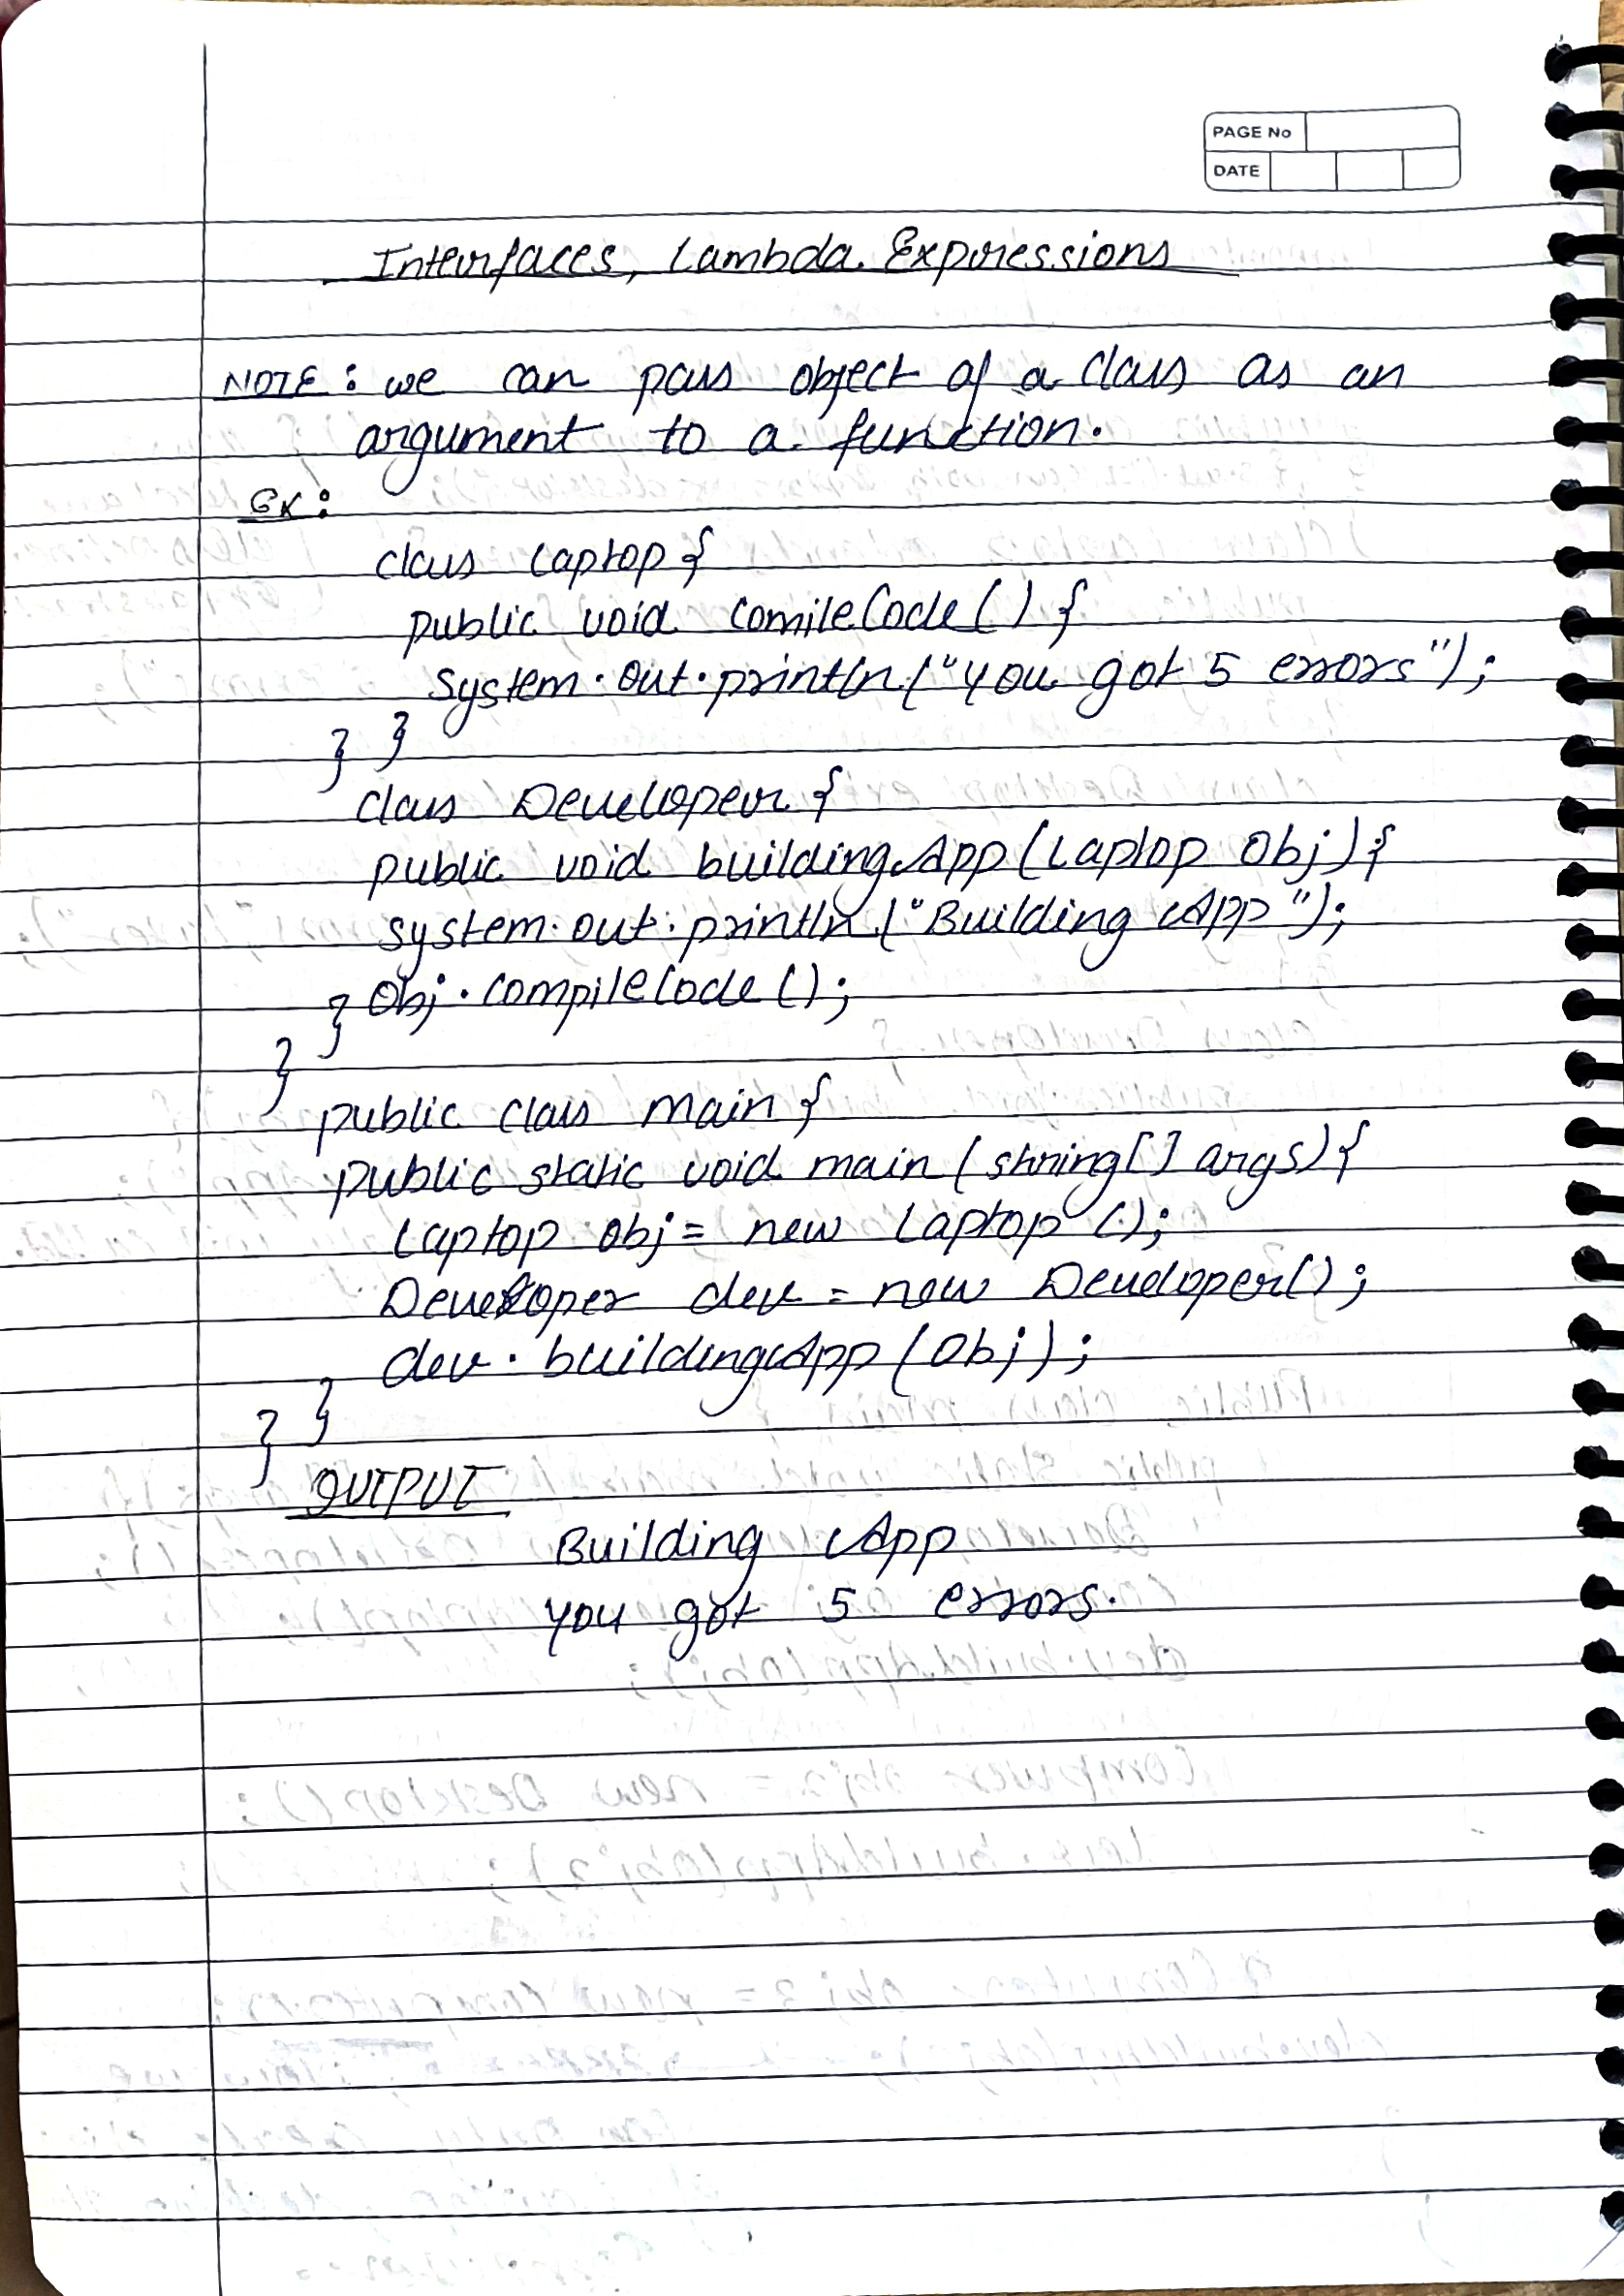 PAGE No
DATE
Interfaces, Lambda Expressions
NOTE: we can pass object of a class as an
argument to a function.
Ex:
class Laptop {
public void comileCode() {
System.out.println("you got 5 errors");
} }
class Developer {
public void buildingApp(Laptop obj) {
system.out.println("Building App");
} obj.compileCode();
}
public class main {
public static void main (string[] args) {
Laptop obj = new Laptop ();
Developer dev = new Developer();
dev.buildingApp(obj);
} }
OUTPUT
Building App
you got 5 errors.